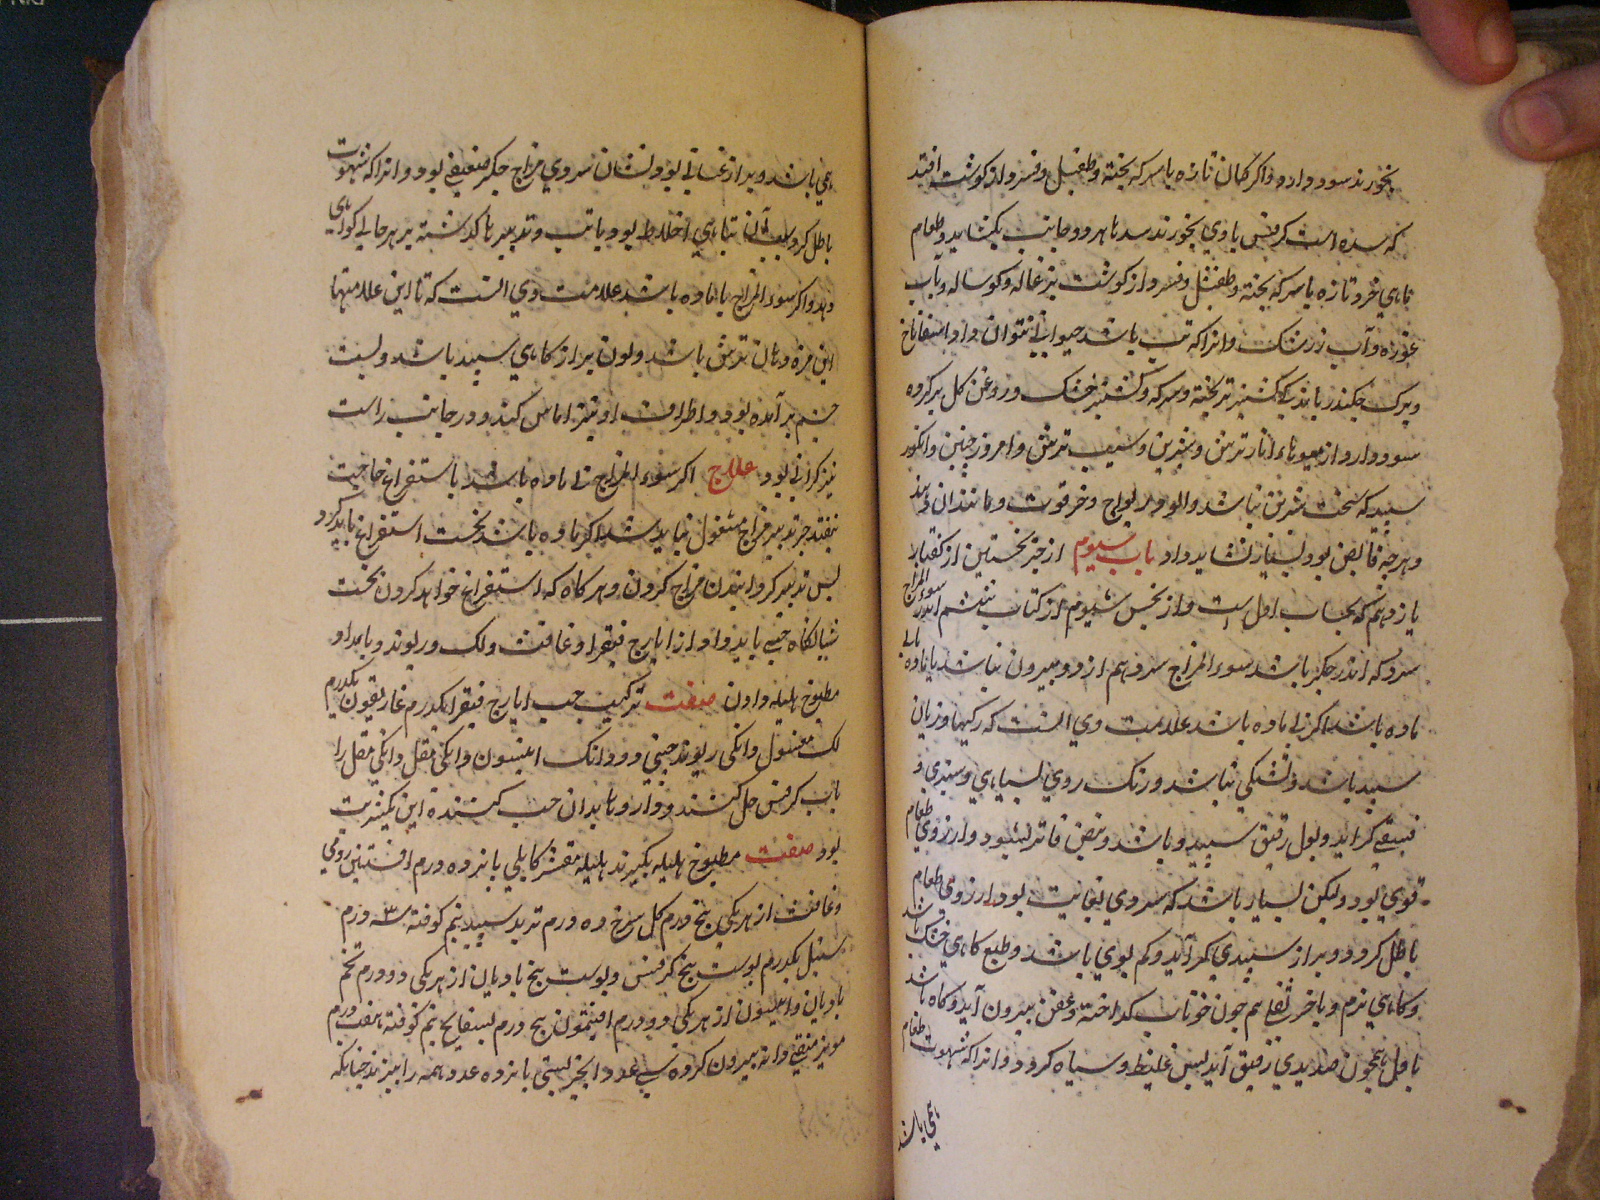 بخورند سود دارد و اگر گمان تازه با سرکه پخته و طفشل و فسرد از گوشت افتد
که سده است کرفس با وی بخورند سد تا هر دو جانب بگشاید و طعام
ماهی خرد تازه با سرکه پخته و طفشل و فسرد از گوشت بزغاله و گوساله و بآب
غوره و آب زرشک و انرا که تب باشد حیوانی نتوان داد اسفاناخ
و برک چکندر باید که کشنیز تر پخته و سرکه و کشنیز خشک و روغن کل بر کرده
سود دارد از میوها انار ترش و شیرین و سیب ترش و امرود چینی و انکور
سپید که سخت شیرین نباشد و الو و
و هرچه قابض بود بسیار نشاید داد باب سیوم از جزء نخستین از گفتار
یازدهم که بحساب اول است و از بخش سیوم از کتاب ششم اندر سوء المزاج
سرد که اندر جکر باشد سوء المزاج سرد هم از دو بیرون نباشد یا با ماده یا بی
ماده باشد اکر بی ماده باشد علامت وی انست که رکها و زبان
سپید باشد و تشنکی نباشد و رنک روی بسیاهی و سپیدی و
کراید و بول رقیق سپید باشد و نبض فاتر بشود و ارزوی طعام
قوی بود ولیکن بسیار باشد که سردی بغایت بود ارزوی طعام
باطل کردد و براز سپیدی کمر آید و کم بوی باشد و طبع کاهی خشک باشد
و کاهی نرم و باخر ثفلی هم چون خونآب کداخته و عفن بیرون آید و کاه باشد
باول همچون صدیدی رقیق آید پس غلیظ و سیاه کردد و انرا که شهوت طعام
همی باشد
همی باشد و براز غسالی بود نشان سردی مزاج جکر ضعیفی بود و انرا که شهوت
باطل کردد سبب آن تباهی اخلاط بود یا تب و تدبیر تا کذشته بر هر حالی کواهی
دهد و اکر سوء المزاج با ماده باشد علامت وی انست که تا این علامتها
این مزه دهان ترش باشد و لون براز کاهی سپید باشد و پست
چشم برآمده بود و اطراف او نیز اماس کند و در جانب راست
نیز کرانی بود علاج اکر سوء المزاج بی ماده باشد باستفراغ حاجت
نیفتد جز بتدبیر مزاج مشغول نباید شد و اکر با ماده باشد نخست استفراغ باید کرد
پس تدبیر کردانیدن مزاج کردن و هرکاه که استفراغ خواهد کردن نخست
شبانکاه حبی باید داد از ایارج فیقرا و غافت و لک و ریوند و بامداد
مطبوخ هلیله دادن صفت ترکیب حب ایارج فیقرا یکدرم غاریقون یکدرم
لک مغسول دانکی ریوند چینی دو دانک انیسون دانکی مقل دانکی مقل را
بآب کرفس حل کنند و داروها بدان حب کنند این یکشربت
بود صفت مطبوخ هلیله بکیرند هلیله مقشر کابلی پانزده درم افسنتین رومی
و غافت از هر یکی پنج درم کل سرخ ده درم تربد سپید نیم کوفته سه ۳ درم
سنبل یکدرم پوست بیخ کرفس و پوست بیخ بادیان از هر یکی دو درم تخم
بادیان و انیسون از هر یکی دو درم افتیمون پنج درم بسفایج نیم کوفته هفت درم
مویز منقی دانه بیرون کرده سی عدد انجیر بستی پانزده عدد همه را بپزند چنانکه